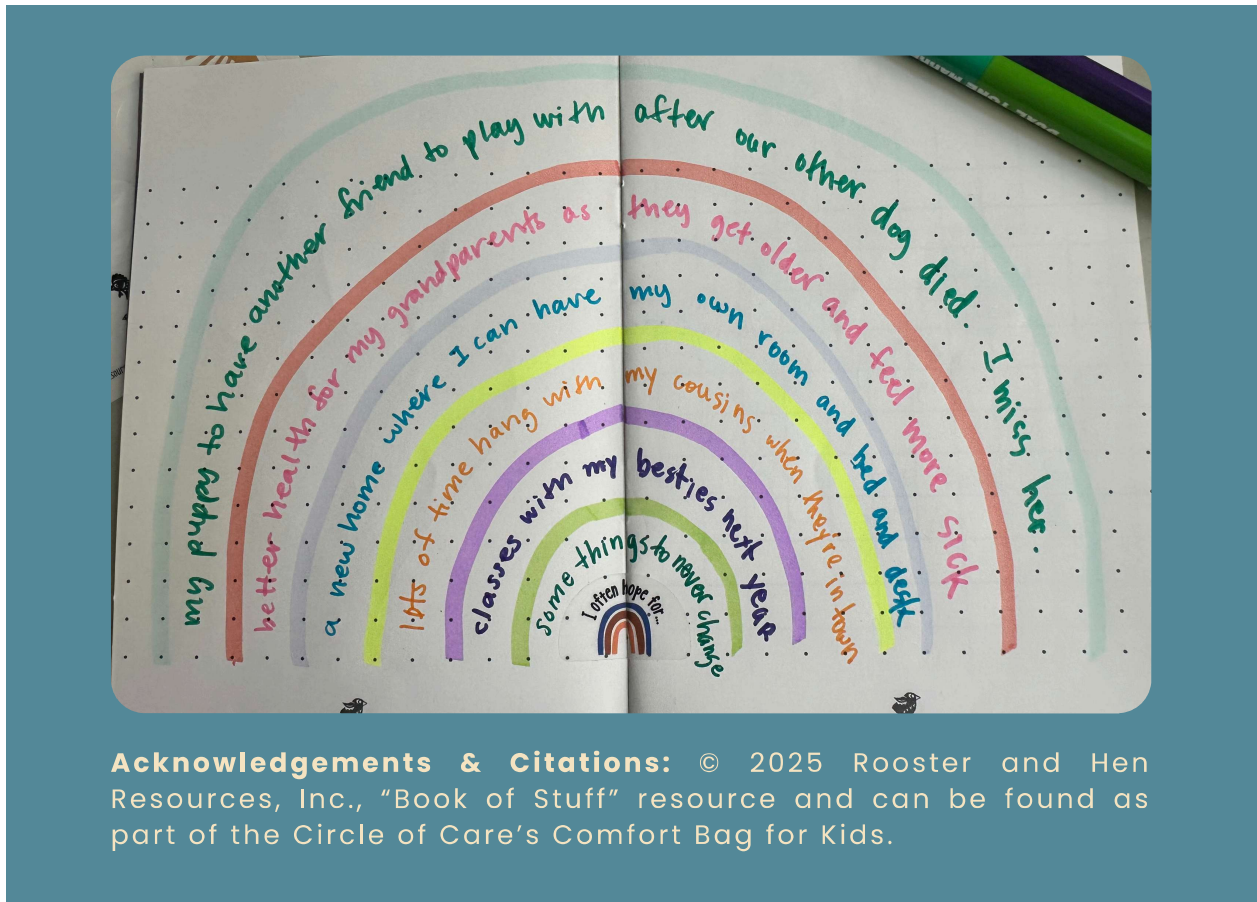 my puppy to have another friend to play with after our other dog died. I miss her.
better health for my grandparents as they get older and feel more sick
a new home where I can have my own room and bed and desk
lots of time hang with my cousins when they're in town
classes with my besties next year
some things to never change
I often hope for...
Acknowledgements & Citations: © 2025 Rooster and Hen
Resources, Inc., “Book of Stuff” resource and can be found as
part of the Circle of Care’s Comfort Bag for Kids.